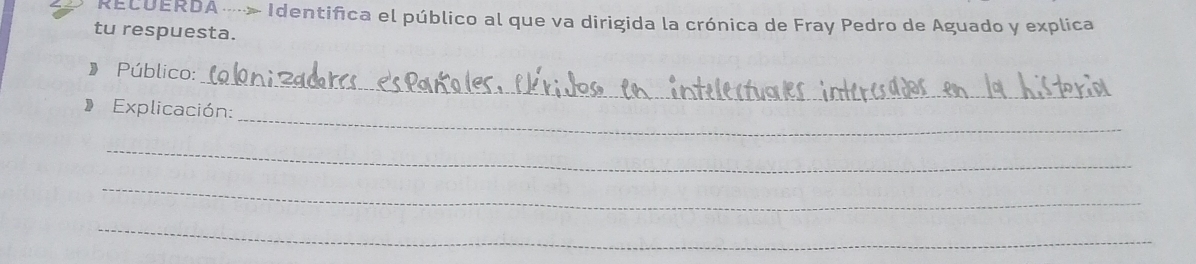 RECUERDA ····> Identifica el público al que va dirigida la crónica de Fray Pedro de Aguado y explica
tu respuesta.
Público: colonizadores españoles, en intelectuales interesados en la historia
Explicación: